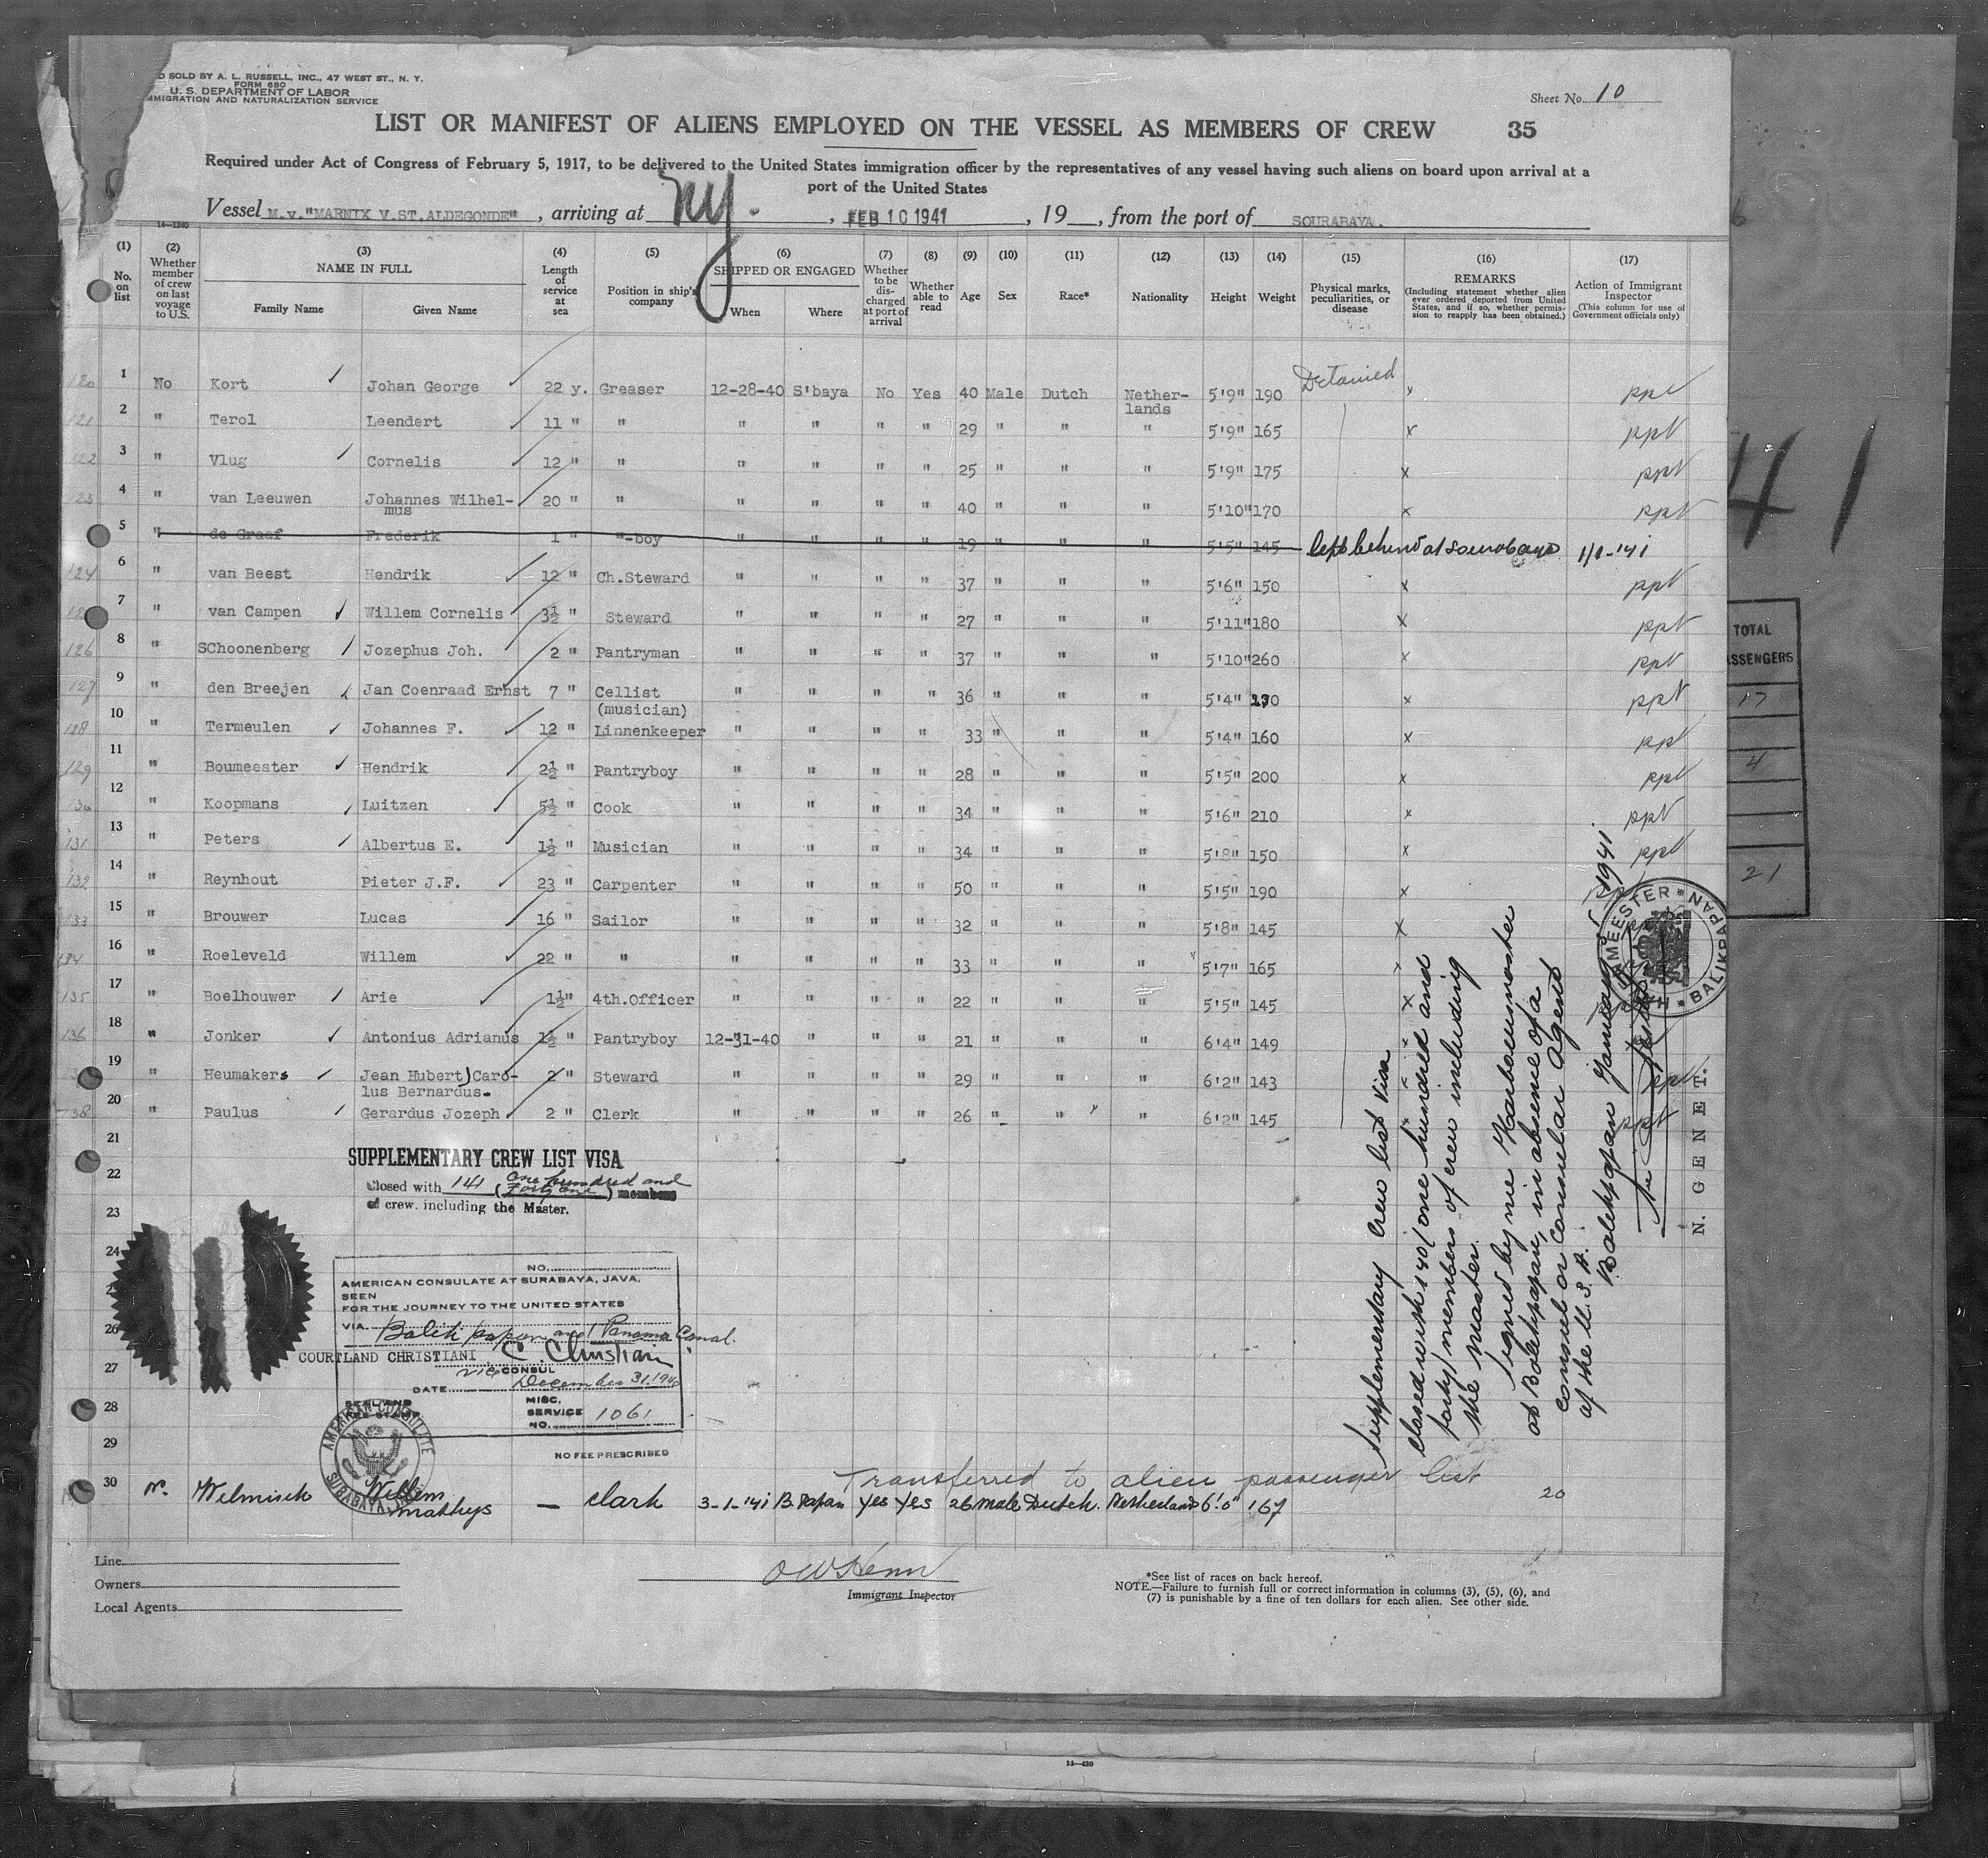 D SOLD BY A. L. RUSSELL, INC., 47 WEST ST., N. Y.
FORM 680
U. S. DEPARTMENT OF LABOR
MMIGRATION AND NATURALIZATION SERVICE
Sheet No. 10
LIST OR MANIFEST OF ALIENS EMPLOYED ON THE VESSEL AS MEMBERS OF CREW 35
Required under Act of Congress of February 5, 1917, to be delivered to the United States immigration officer by the representatives of any vessel having such aliens on board upon arrival at a
port of the United States
Vessel M.v."MARNIX V.ST.ALDEGONDE", arriving at NY., FEB 10 1941, 19__, from the port of SOURABAYA.
14—1240
(1) No. on list
(2) Whether member of crew on last voyage to U.S.
(3) NAME IN FULL Family Name Given Name
(4) Length of service at sea
(5) Position in ship's company
(6) SHIPPED OR ENGAGED When Where
(7) Whether to be discharged at port of arrival
(8) Whether able to read
(9) Age
(10) Sex
(11) Race*
(12) Nationality
(13) Height
(14) Weight
(15) Physical marks, peculiarities, or disease
(16) REMARKS (Including statement whether alien ever ordered deported from United States, and if so, whether permission to reapply has been obtained.)
(17) Action of Immigrant Inspector (This column for use of Government officials only)
120 1 No Kort Johan George 22 y. Greaser 12-28-40 S'baya No Yes 40 Male Dutch Nether-lands 5'9" 190 Detained x ppt
121 2 " Terol Leendert 11 " " " " " " 29 " " " 5'9" 165 x ppt
122 3 " Vlug Cornelis 12 " " " " " " 25 " " " 5'9" 175 x ppt
123 4 " van Leeuwen Johannes Wilhel-mus 20 " " " " " " 40 " " " 5'10" 170 x ppt
5 " de Graaf Frederik 1 " "-boy " " " " 19 " " " 5'5" 145 left behind at Sourabaya 1/1-'41
124 6 " van Beest Hendrik 12 " Ch.Steward " " " " 37 " " " 5'6" 150 x ppt
7 " van Campen Willem Cornelis 3½ " Steward " " " " 27 " " " 5'11" 180 x ppt
126 8 " SChoonenberg Jozephus Joh. 2 " Pantryman " " " " 37 " " " 5'10" 260 x ppt
127 9 " den Breejen Jan Coenraad Ernst 7 " Cellist (musician) " " " " 36 " " " 5'4" x ppt
128 10 " Termeulen Johannes F. 12 " Linnenkeeper " " " " 33 " " " 5'4" 160 x ppt
129 11 " Boumeester Hendrik 2½ " Pantryboy " " " " 28 " " " 5'5" 200 x ppt
130 12 " Koopmans Luitzen 5½ " Cook " " " " 34 " " " 5'6" 210 x ppt
131 13 " Peters Albertus E. 1½ " Musician " " " " 34 " " " 5'8" 150 x ppt
132 14 " Reynhout Pieter J.F. 23 " Carpenter " " " " 50 " " " 5'5" 190 x
133 15 " Brouwer Lucas 16 " Sailor " " " " 32 " " " 5'8" 145 x
134 16 " Roeleveld Willem 22 " " " " " " 33 " " " 5'7" 165 x
135 17 " Boelhouwer Arie 1½" 4th.Officer " " " " 22 " " " 5'5" 145 x
136 18 " Jonker Antonius Adrianus 1½ " Pantryboy 12-31-40 " " " 21 " " " 6'4" 149
19 " Heumakers Jean Hubert Caro-lus Bernardus. 2 " Steward " " " " 29 " " " 6'2" 143 ppt
138 20 " Paulus Gerardus Jozeph 2 " Clerk " " " " 26 " " " 6'2" 145 ppt
21
22
23
24
26
27
28
29
SUPPLEMENTARY CREW LIST VISA
Closed with 141 (one hundred and forty one) members
of crew. including the Master.
NO.
AMERICAN CONSULATE AT SURABAYA, JAVA.
SEEN
FOR THE JOURNEY TO THE UNITED STATES
VIA Balik papan and Panama Canal.
COURTLAND CHRISTIANI C Christiani
vice CONSUL
DATE December 31.1940
MISC.
SERVICE 1061
NO.
NO FEE PRESCRIBED
AMERICAN CONSULATE
SURABAYA, JAVA
Transferred to alien passenger list
30 N. Welmisch Willem Matthys — clark 3-1-'41 B. Papan yes yes 26 male Dutch. Netherlands 6'.0" 167
20
Supplementary crew list visa
closed with 140/one hundred and
forty/members of crew including
the master.
Signed by me Havenmeester
at Balikpapan, in absence of a
consul or consular Agent
of the U.S.A.
Balikpapan January 3rd 1941
HAVENMEESTER * BALIKPAPAN *
N. GENET.
Line
Owners
Local Agents
Immigrant Inspector
*See list of races on back hereof.
NOTE.—Failure to furnish full or correct information in columns (3), (5), (6), and
(7) is punishable by a fine of ten dollars for each alien. See other side.
41
TOTAL
SSENGERS
17
4
21
11—430